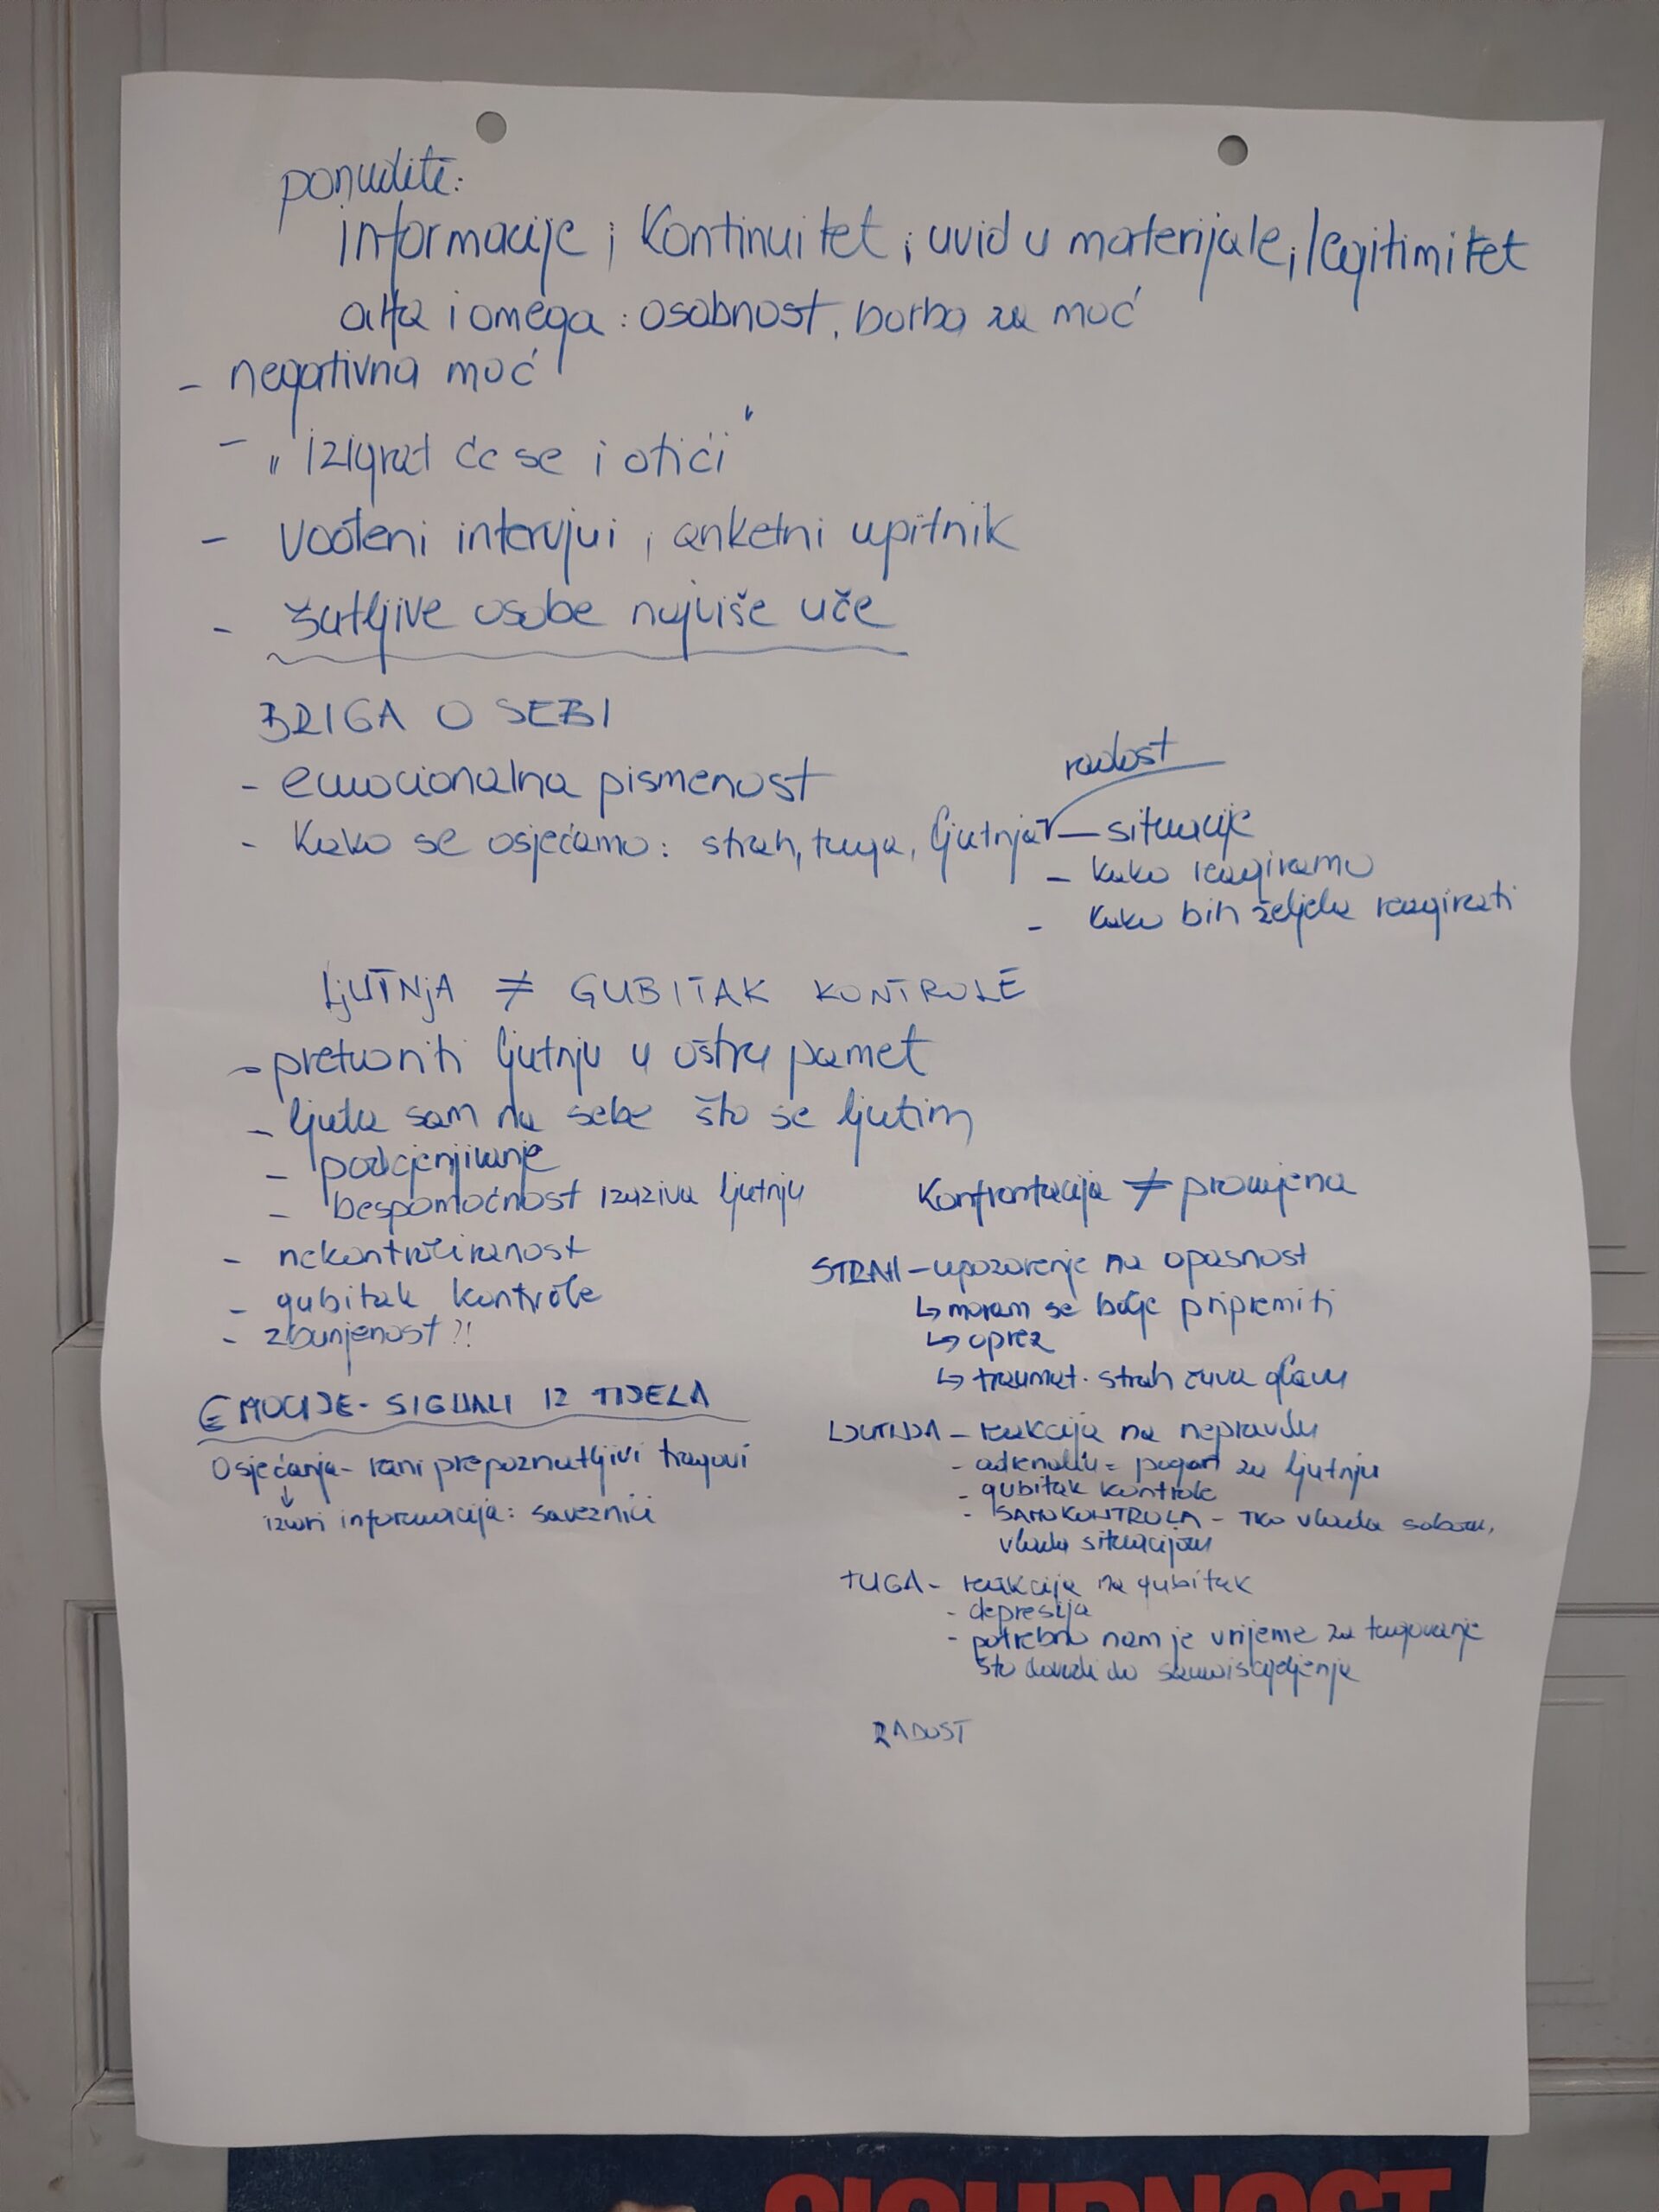 ponudite:
informacije; Kontinuitet; uvid u materijale; legitimitet
alfa i omega: osobnost, borba za moć
- negativna moć
- „izigrat će se i otići"
- vođeni intervjui, anketni upitnik
- šutljive osobe najviše uče
BRIGA O SEBI
- emocionalna pismenost
radost
- Kako se osjećamo: strah, tuga, ljutnja - situacije
- kako reagiramo
- kako bih željela reagirati
LJUTNJA ≠ GUBITAK KONTROLE
- pretvoriti ljutnju u oštru pamet
- ljuta sam na sebe što se ljutim
- podcjenjivanje
- bespomoćnost izaziva ljutnju
- nekontroliranost
- gubitak kontrole
- zbunjenost?!
Konfrontacija ≠ promjena
STRAH - upozorenje na opasnost
↳ moram se bolje pripremiti
↳ oprez
↳ traumat. strah čuva glavu
LJUTNJA - reakcija na nepravdu
- adrenalin = pogon za ljutnju
- gubitak kontrole
- SAMOKONTROLA - TKO vlada sobom,
vlada situacijom
TUGA - reakcija na gubitak
- depresija
- potrebno nam je vrijeme za tugovanje
što dovodi do samoiscjeljenja
RADOST
EMOCIJE - SIGNALI IZ TIJELA
Osjećanja - rani prepoznatljivi tragovi
↓
izvori informacija: saveznici
SIGURNOST